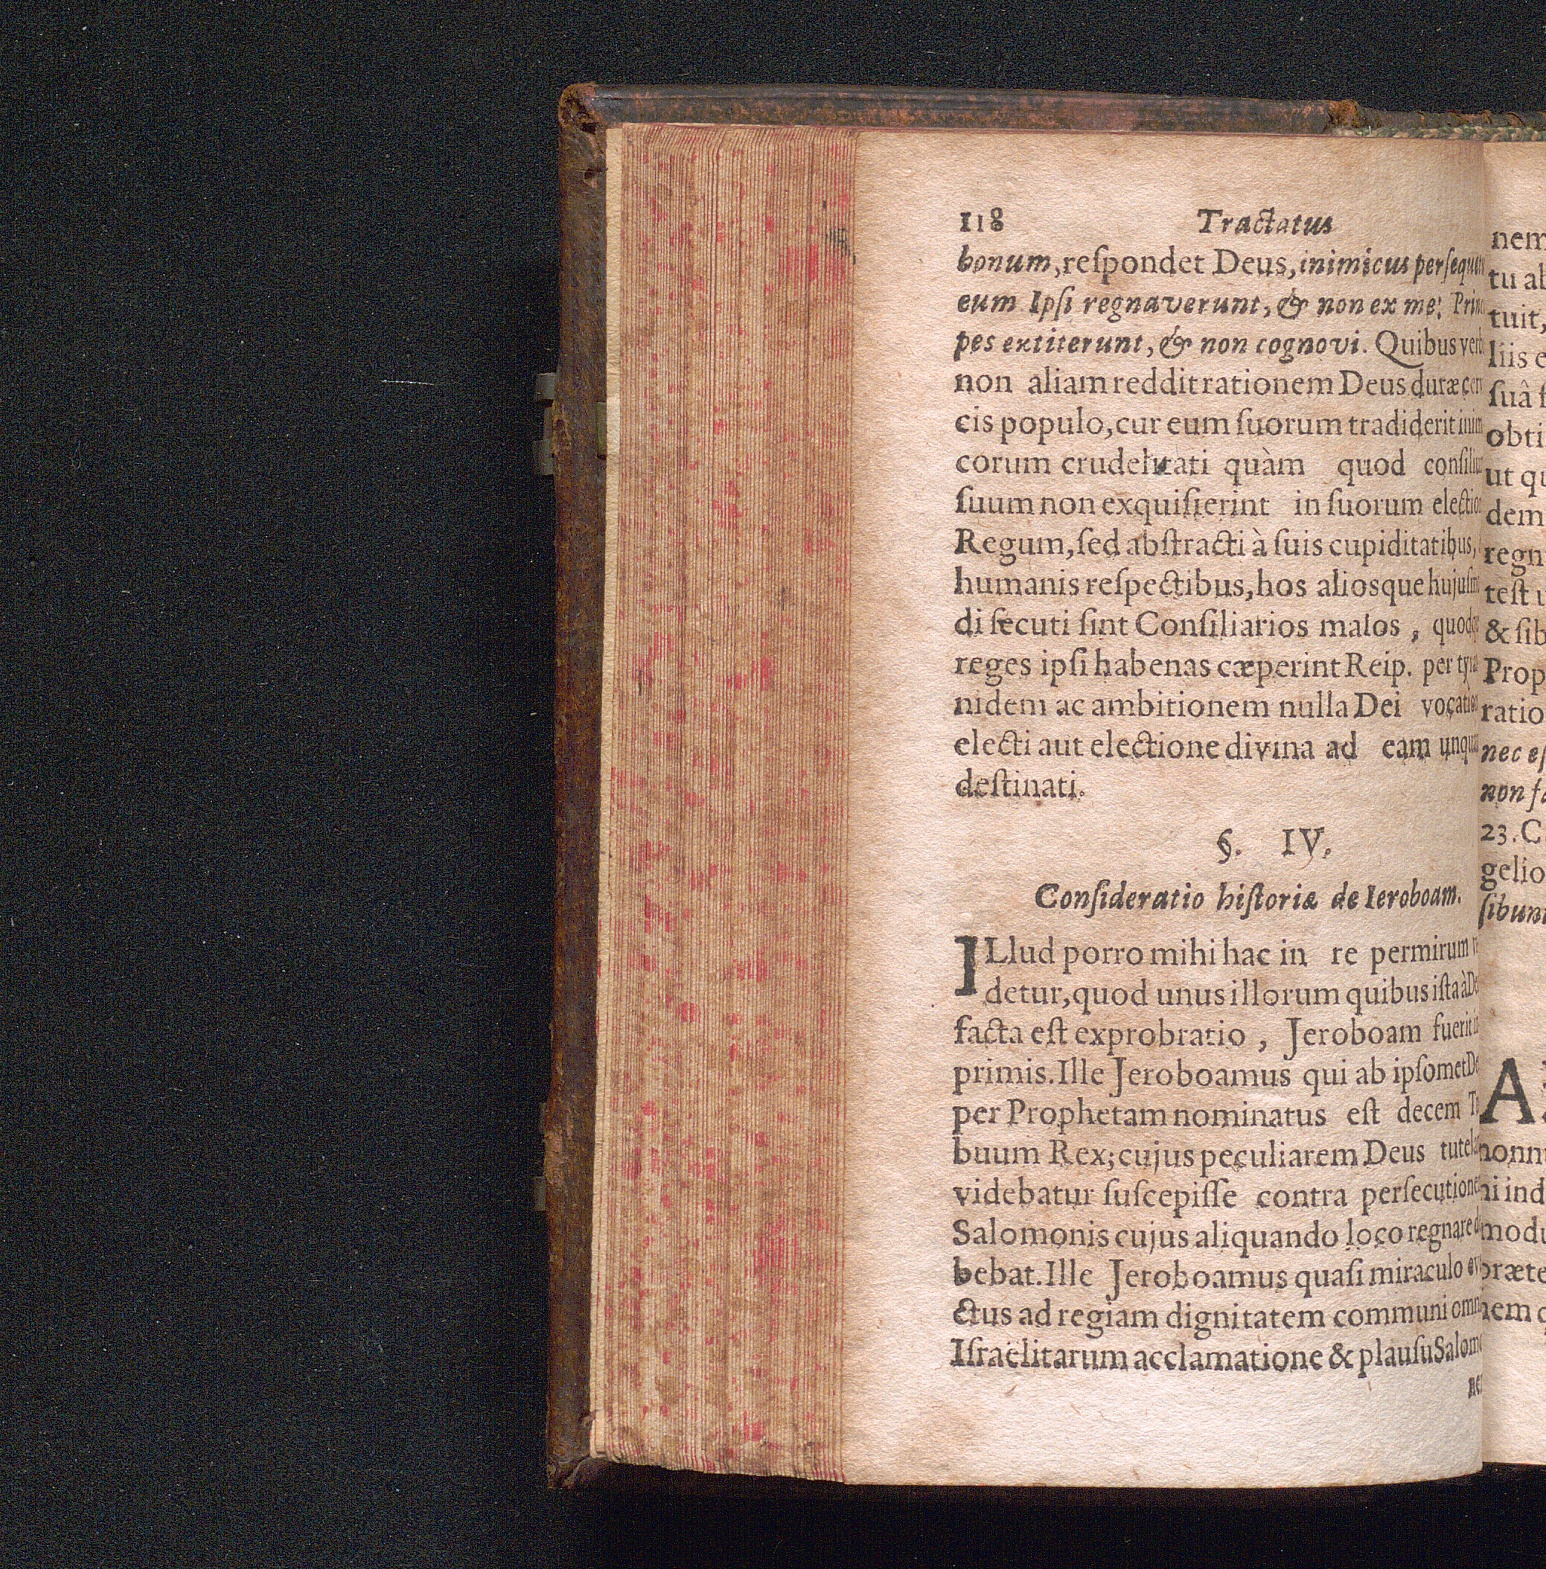 118 Tractatus
bonum, reſpondet Deus, inimicus
eum Ipſi regnaverunt, & non ex me;
pes extiterunt, & non cognovi. Quibus
non aliam reddit rationem Deus duræ
cis populo, cur eum ſuorum tradiderit
corum quàm quod
ſuum non exquiſierint in ſuorum
Regum, ſed abſtracti à ſuis cupiditatibus,
humanis reſpectibus, hos alioſque
di ſecuti ſint Conſiliarios malos,
reges ipſi habenas cæperint Reip. per
nidem ac ambitionem nulla Dei
electi aut electione divina ad eam
deſtinati.
§. IV.
Conſideratio hiſtoriæ de Ieroboam.
ILlud porro mihi hac in re permirum
detur, quod unus illorum quibus iſta à
facta eſt exprobratio, Jeroboam fuerit
primis. Ille Jeroboamus qui ab ipſomet
per Prophetam nominatus eſt decem
buum Rex; cujus peculiarem Deus
videbatur ſuſcepiſſe contra
Salomonis cujus aliquando loco regnare
bebat. Ille Jeroboamus quaſi miraculo
ctus ad regiam dignitatem communi
Iſraëlitarum acclamatione & plauſu
nem
tu
tuit,
liis
ſuâ
ut
dem
teſt
&
nec
non
23.